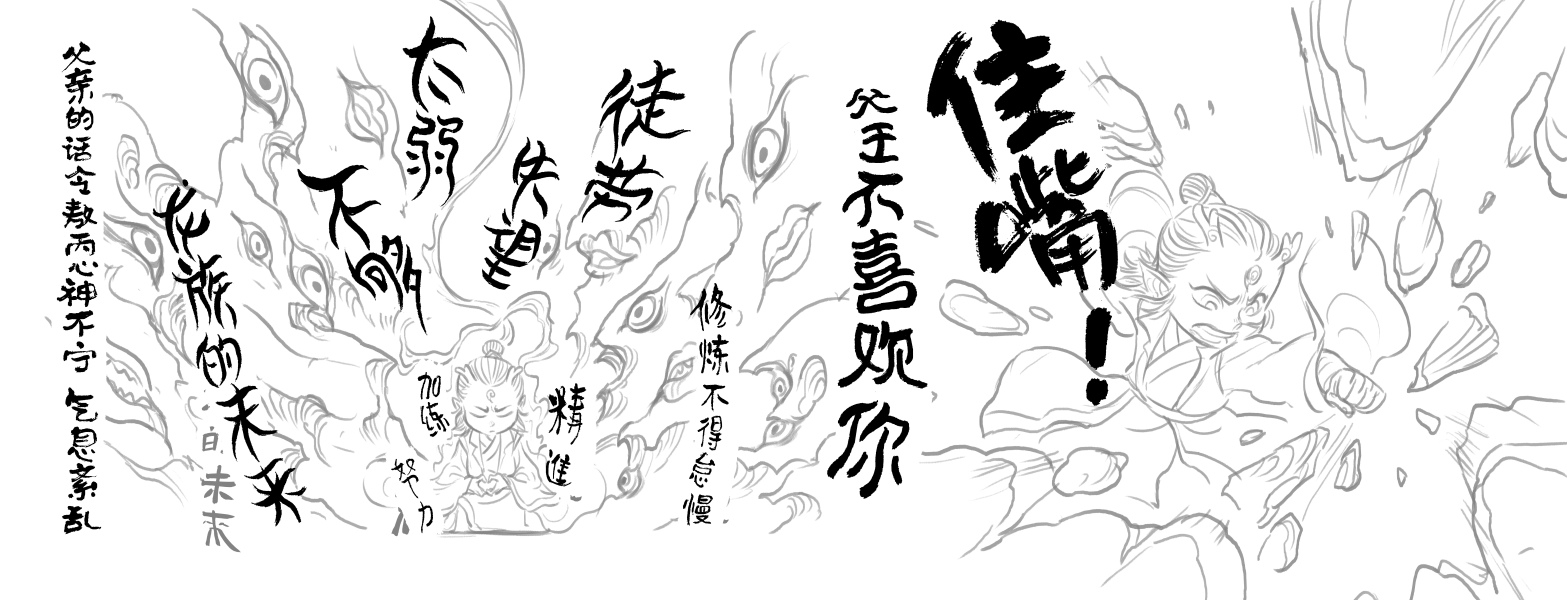 父亲的话令敖丙心神不宁 气息紊乱
龙族的未来
的未来
不够
太弱
失望
徒劳
加练
努力
精進
修炼不得怠慢
父王不喜欢你
住嘴！